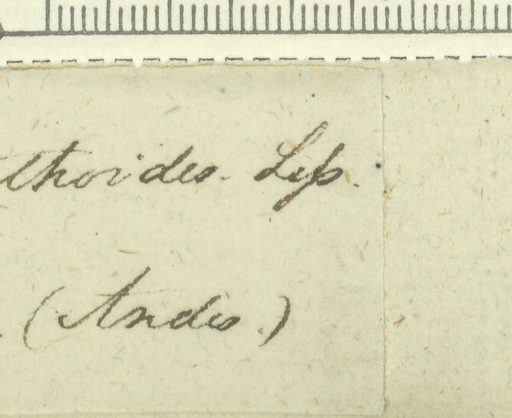 thoides. Less.
(Andes.)